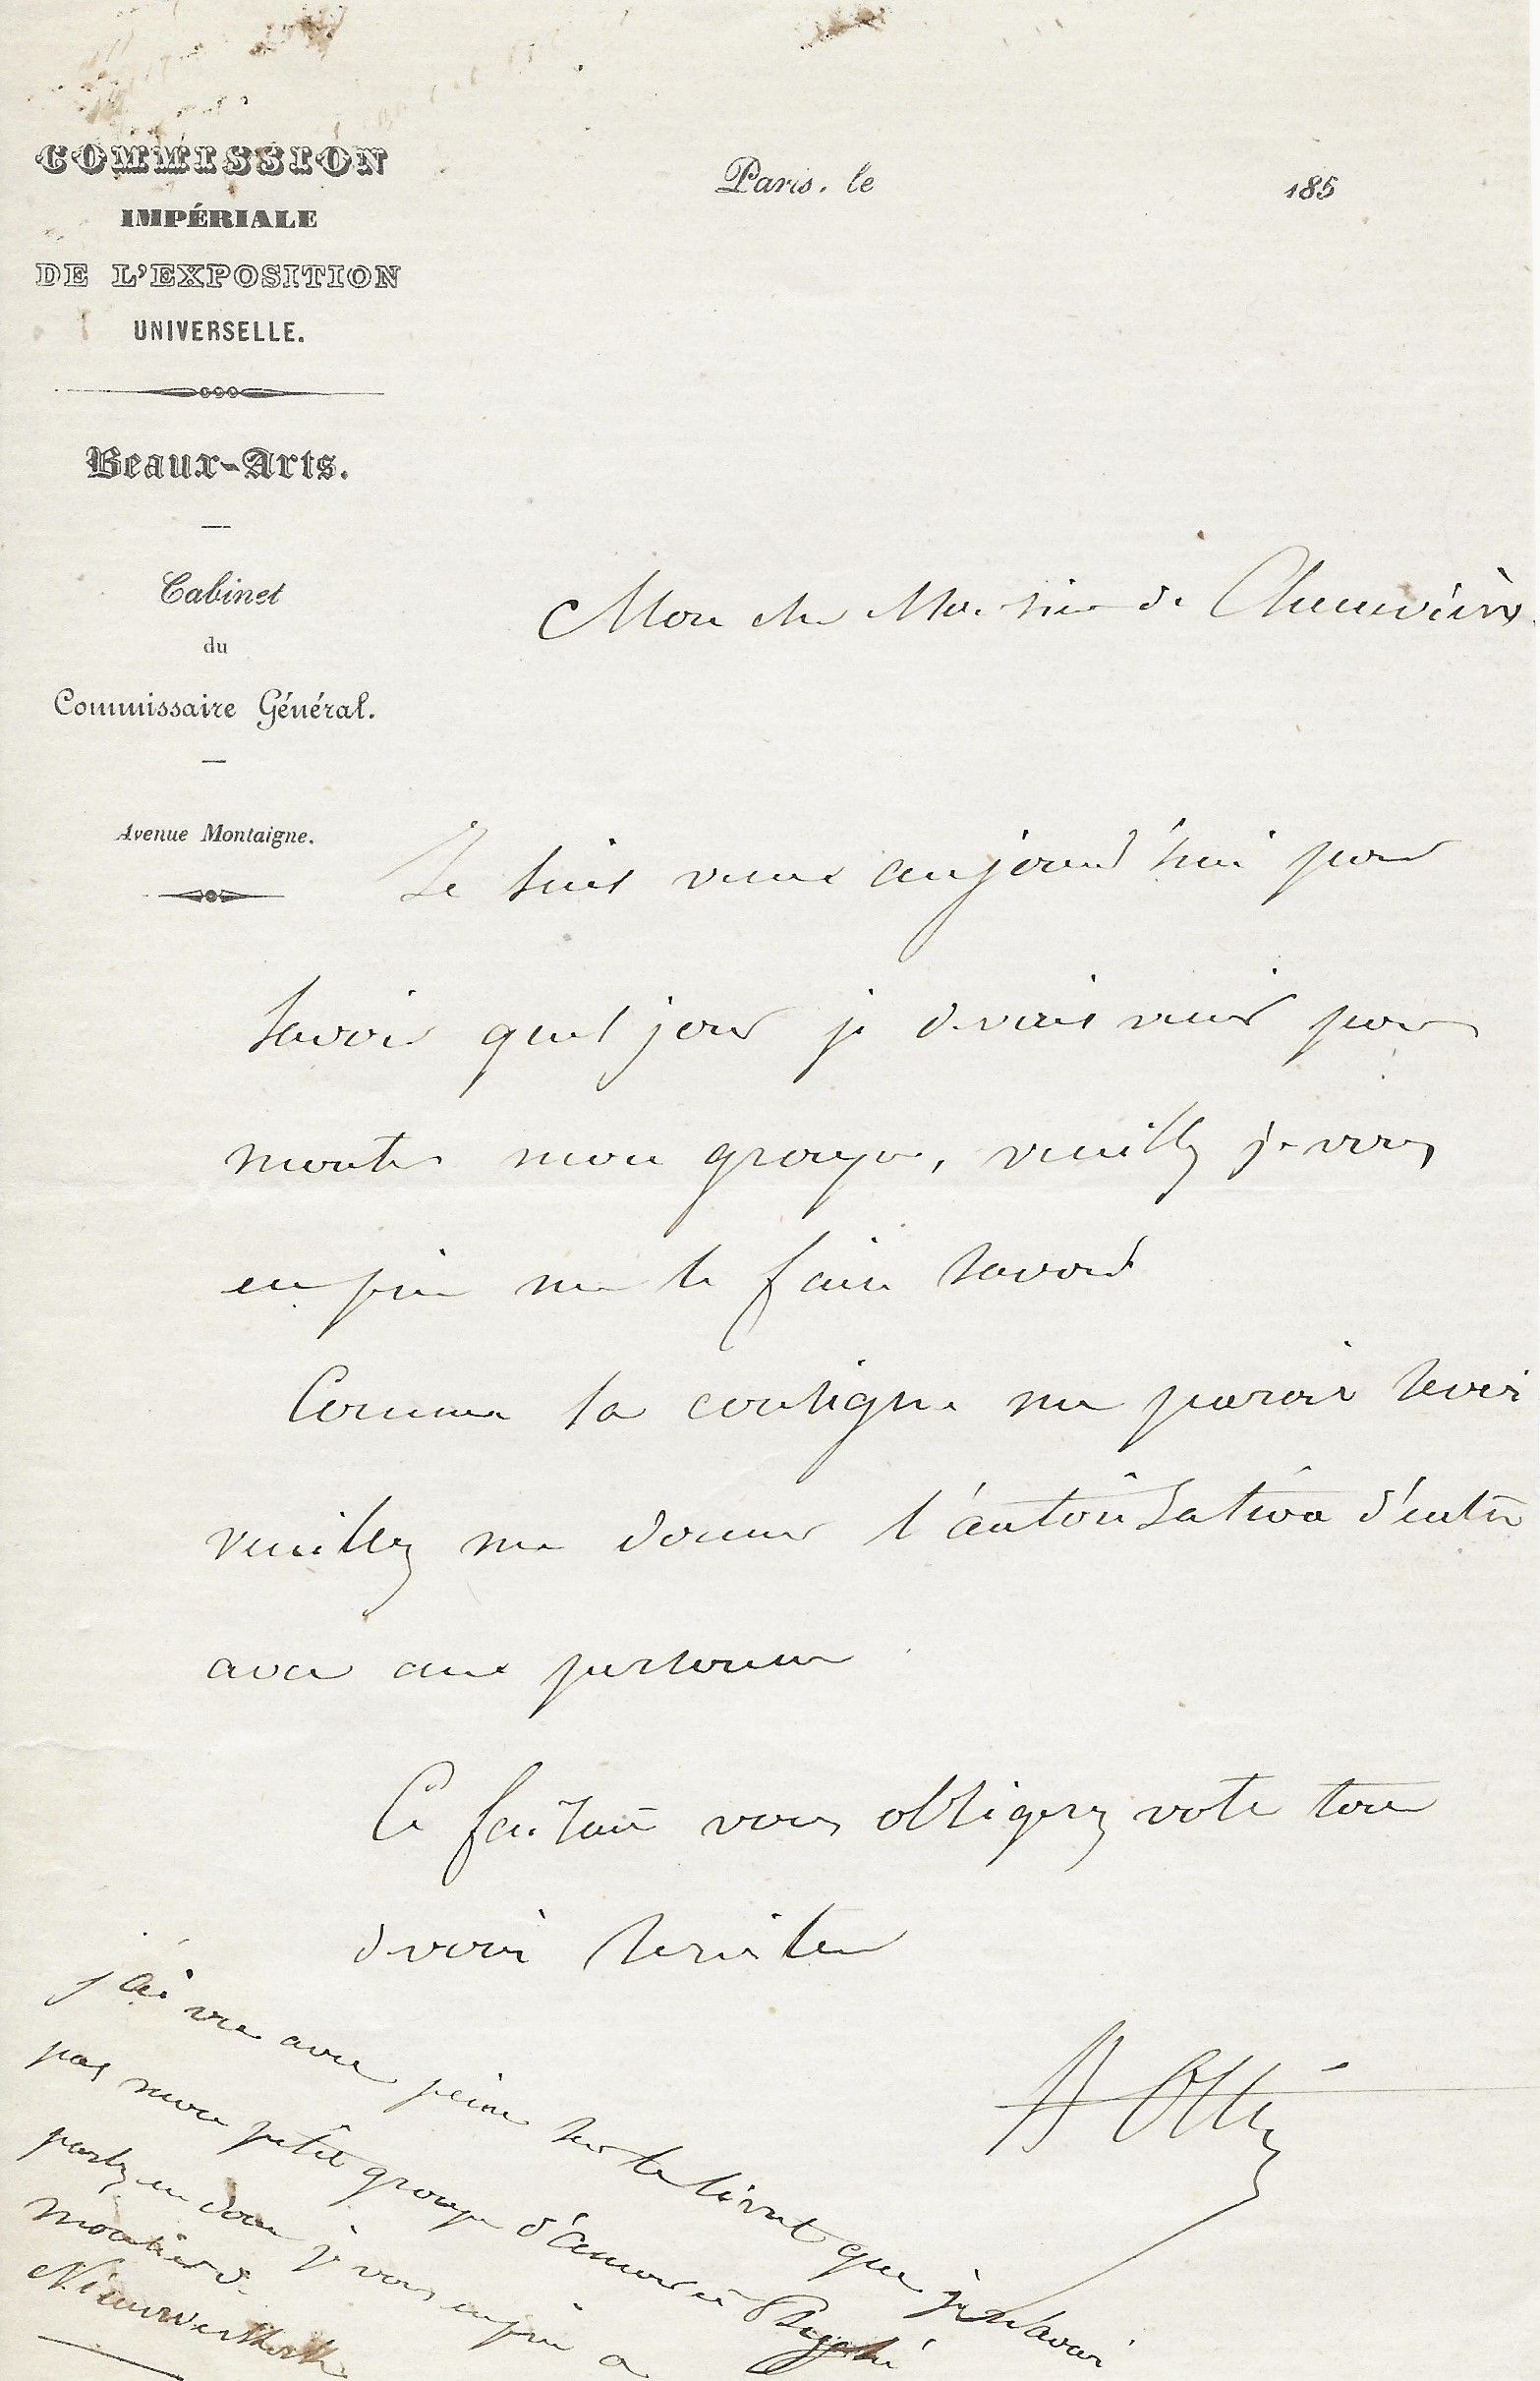 COMMISSION
IMPÉRIALE
DE L'EXPOSITION
UNIVERSELLE.
Beaux-Arts.
Cabinet
du
Commissaire Général.
Avenue Montaigne.
Paris, le 185
Mon cher Monsieur de Chennevières
Je suis venu aujourd'hui pour
savoir quel jour je devais venir pour
monter mon groupe, veuillez je vous
en prie me le faire savoir
Comme la consigne me parait sévère
veuillez me donner l'autorisation d'entrer
avec une personne
Ce faisant vous obligerez votre tout
devoué serviteur
A Ottin
j'ai vu avec peine sur le livret que je n'avais
pas mon petit groupe d'amour et Psyché
parlez en donc je vous en prie a
monsieur de
Nieuwerkerke